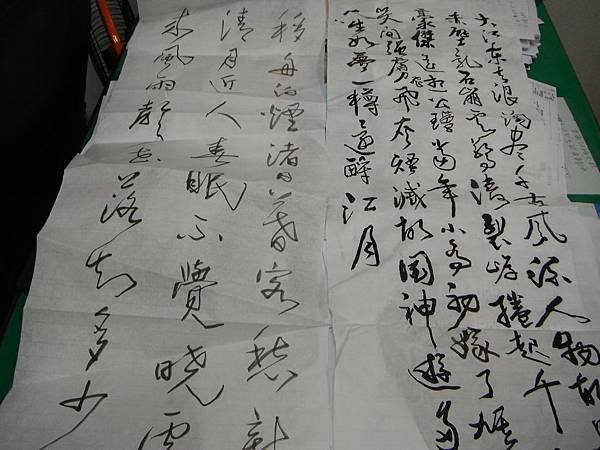 大江东去浪淘尽千古風流人物故
赤壁亂石崩雲驚濤裂岸捲起千
豪傑遥想公瑾當年小喬初嫁了雄
笑間強虜飛灰煙滅故國神遊多
人生如夢一樽還酹江月
移舟泊煙渚日暮客愁新
清月近人春眠不覺曉處
來風雨聲花落知多少